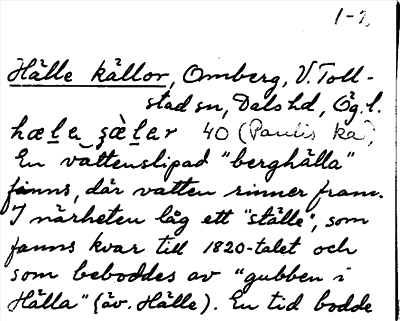 1-2,
Hälle källor, Omberg, V. Toll-
stad sn, Dals hd, Ög. l.
hæl̲e çæ̀l̲ar 40 (Paulis ka),
En vattenslipad "berghälla"
finns, där vatten rinner fram.
I närheten låg ett "ställe", som
fanns kvar till 1820-talet och
som beboddes av "gubben i
Hälla" (äv. Hälle). En tid bodde